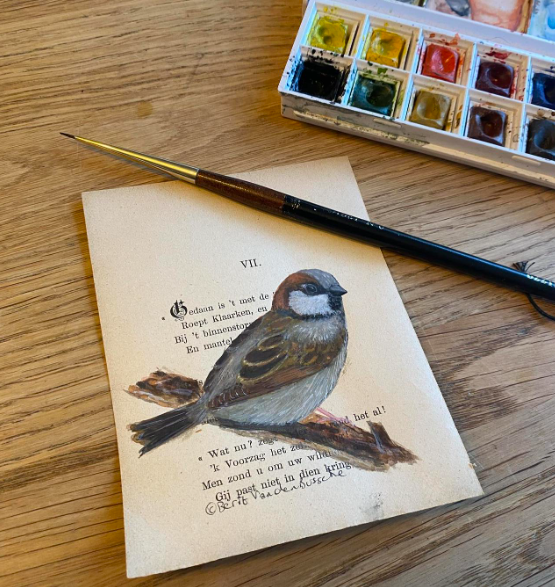 VII.
" Gedaan is 't met de
Roept Klaarken, en
Bij 't binnenstor
En mantel
het al!
" Wat nu? zeg
'k Voorzag het
Men zond u om uw
Gij past niet in dien kring
©Berit Vandenbussche